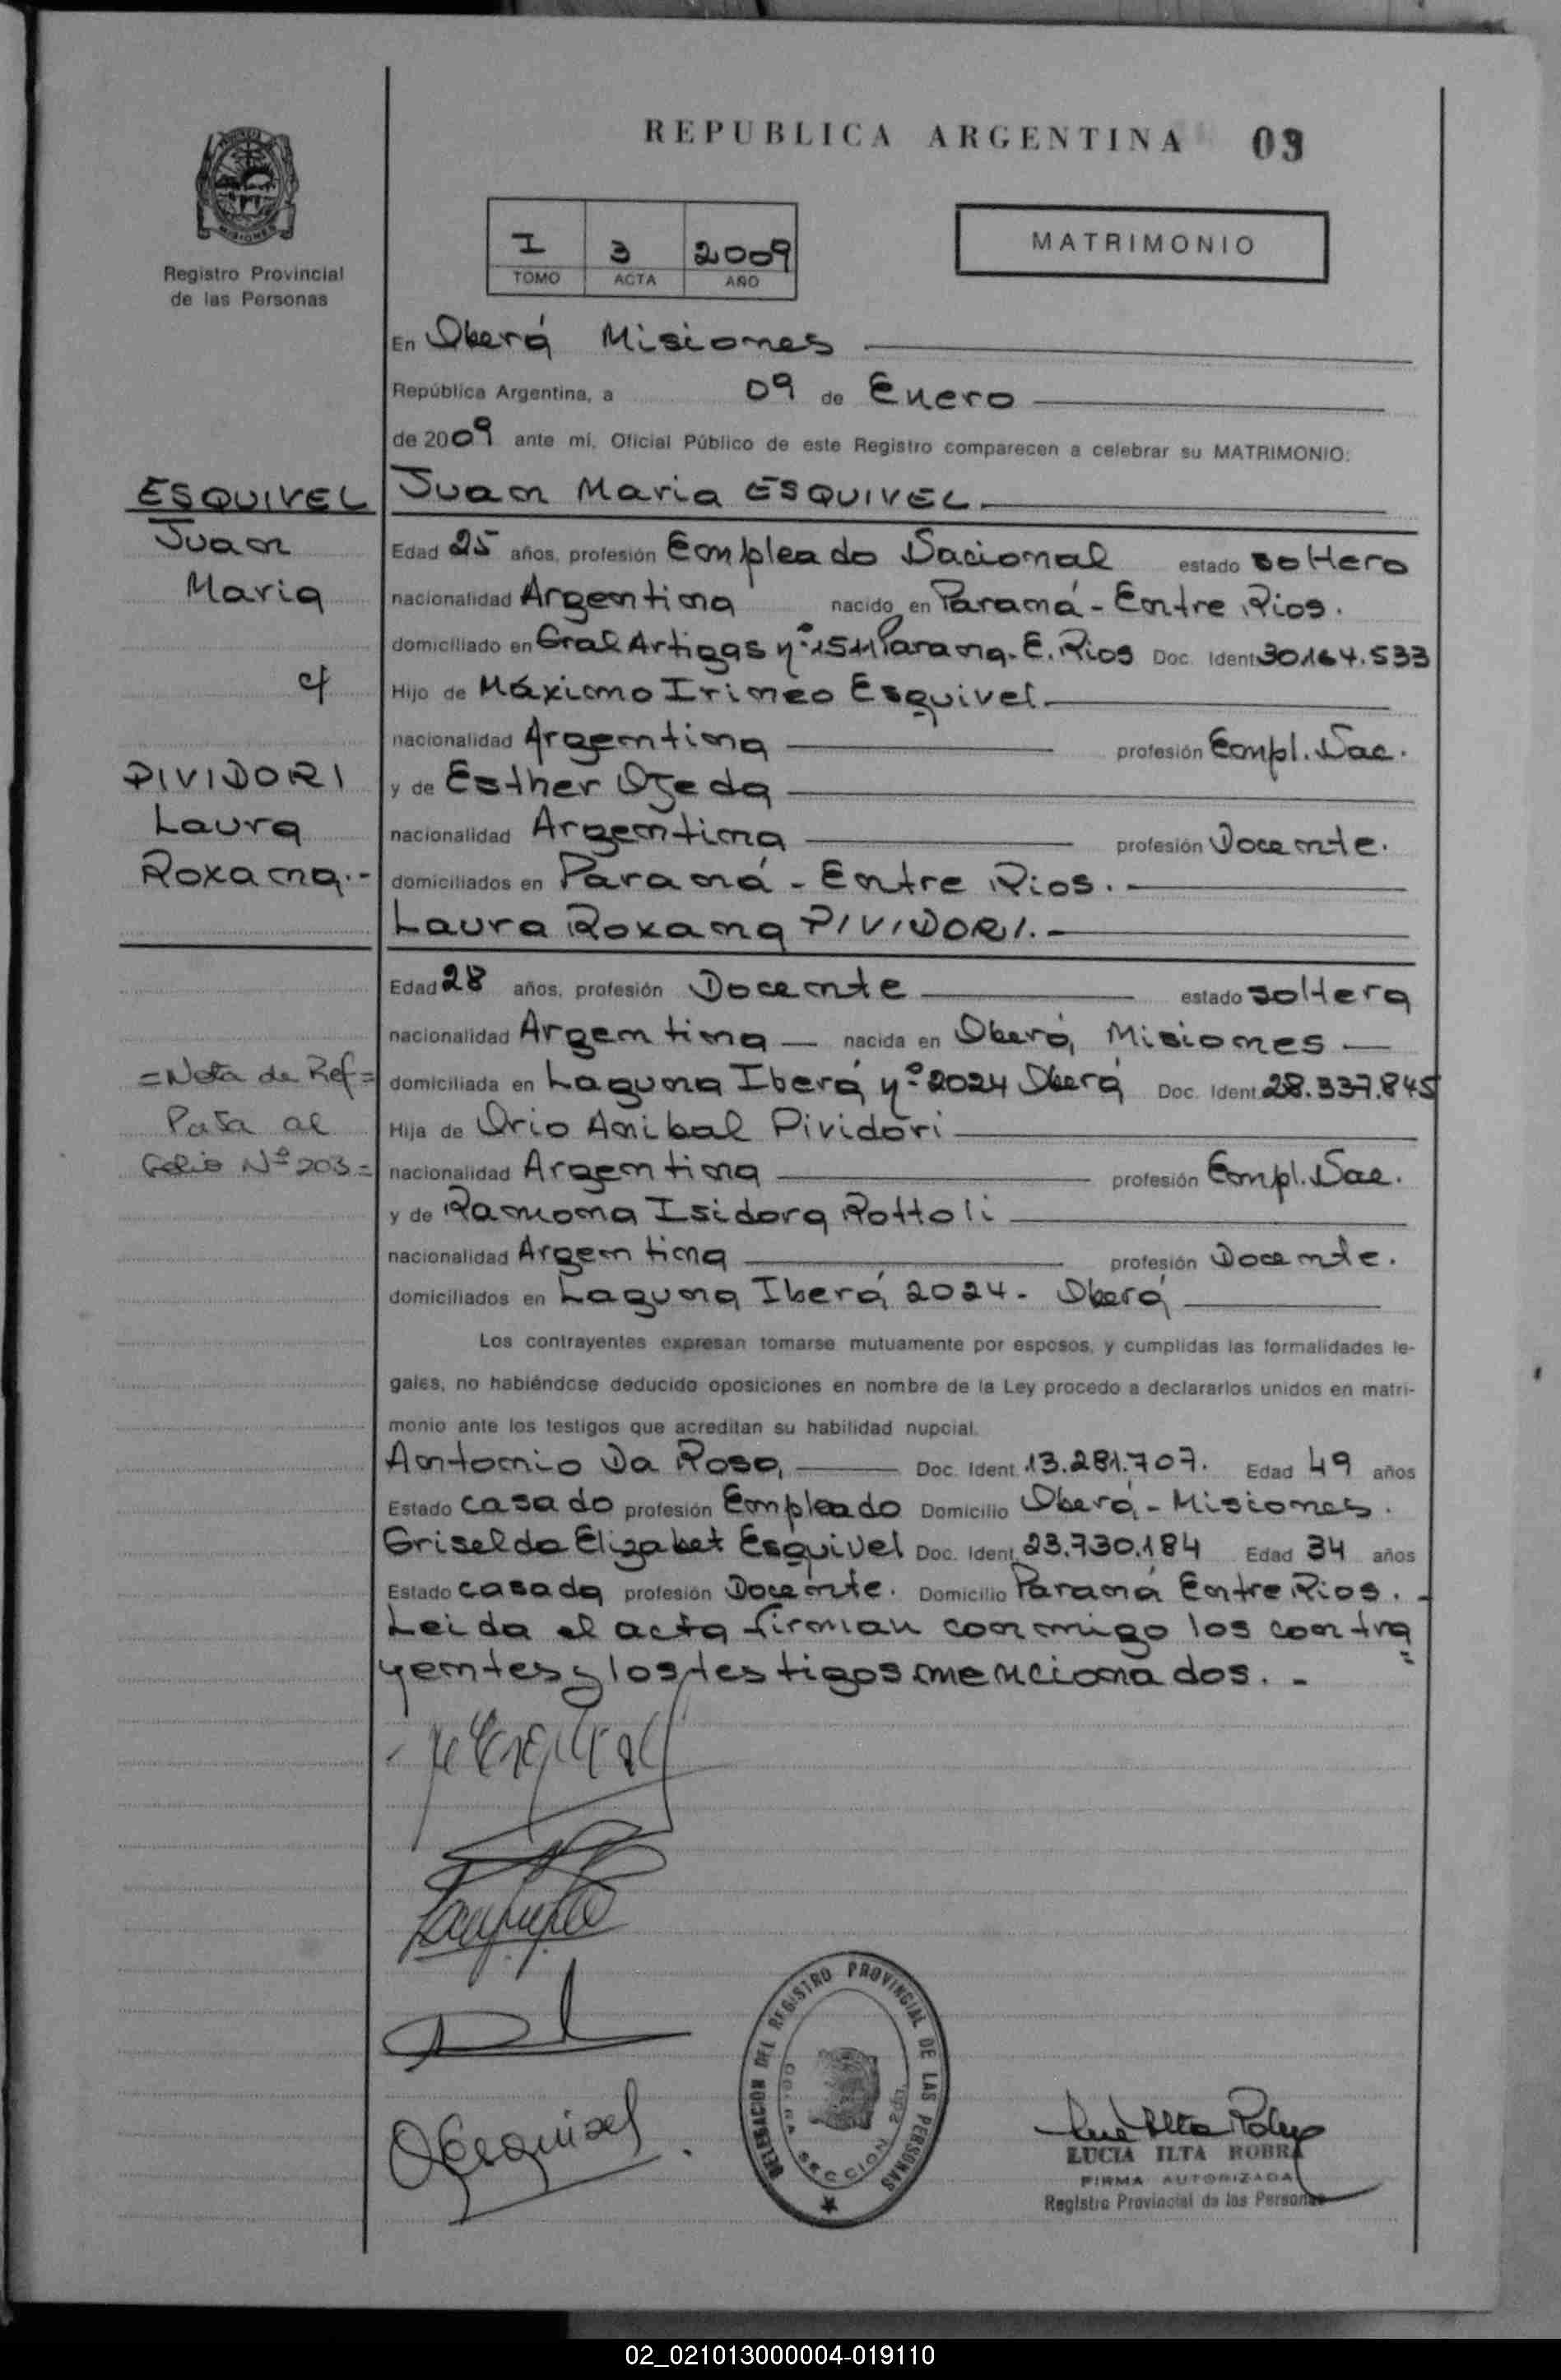 REPUBLICA ARGENTINA 03
MISIONES
Registro Provincial
de las Personas
I 3 2009
TOMO ACTA AÑO
MATRIMONIO
En Oberá Misiones
República Argentina, a 09 de Enero
de 2009 ante mi, Oficial Público de este Registro comparecen a celebrar su MATRIMONIO:
ESQUIVEL
Juan
Maria
c/
PIVIDORI
Laura
Roxana.-
=Nota de Ref=
Pasa al
Folio Nº 203=
Juan Maria ESQUIVEL.
Edad 25 años, profesión Empleado Nacional estado soltero
nacionalidad Argentina nacido en Paraná - Entre Rios.
domiciliado en Gral Artigas nº 1511 Parana. E. Rios Doc. Ident. 30.164.533
Hijo de Máximo Irineo Esquivel.
nacionalidad Argentina profesión Empl. Nac.
y de Esther Ojeda
nacionalidad Argentina profesión Docente.
domiciliados en Paraná - Entre Rios.
Laura Roxana PIVIDORI.
Edad 28 años, profesión Docente estado soltera
nacionalidad Argentina nacida en Oberá, Misiones
domiciliada en Laguna Iberá nº 2024 Oberá Doc. Ident. 28.337.845
Hija de Orio Anibal Pividori
nacionalidad Argentina profesión Empl. Nac.
y de Ramona Isidora Rottoli
nacionalidad Argentina profesión Docente.
domiciliados en Laguna Iberá 2024. Oberá
Los contrayentes expresan tomarse mutuamente por esposos, y cumplidas las formalidades le-
gales, no habiéndose deducido oposiciones en nombre de la Ley procedo a declararlos unidos en matri-
monio ante los testigos que acreditan su habilidad nupcial.
Antonio Da Rosa, Doc. Ident. 13.281.707. Edad 49 años
Estado casado profesión Empleado Domicilio Oberá - Misiones.
Griselda Elizabet Esquivel Doc. Ident. 23.730.184 Edad 34 años
Estado casada profesión Docente. Domicilio Paraná Entre Rios. -
Leida el acta firman conmigo los contra
yentes y los testigos mencionados. -
DELEGACION DEL REGISTRO PROVINCIAL DE LAS PERSONAS
LUCIA ILTA ROBRA
FIRMA AUTORIZADA
Registro Provincial de las Personas
02_021013000004-019110